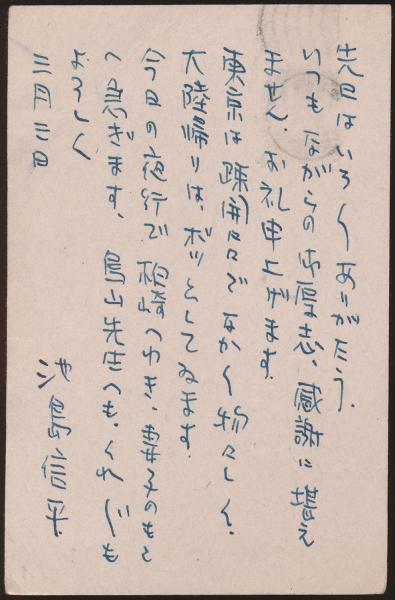 先日はいろ〱ありがたう.
いつもながらの御厚志、感謝に堪え
ません. お礼申上げます.
東京は疎開々々でなか〱物々しく.
大陸帰りは、ボッとしてゐます.
今日の夜行で 柏崎へゆき、妻子のもと
へ急ぎます. 鳥山先生へも、くれ〲も
よろしく
三月三日
池島信平